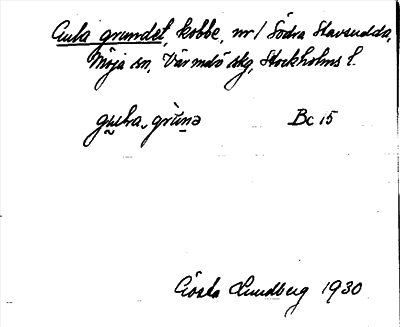 Gula grundet, kobbe, nv/ Södra Stavsudda,
Möja sn, Värmdö skg, Stockholms l.
Bc 15
Gösta Lundberg 1930